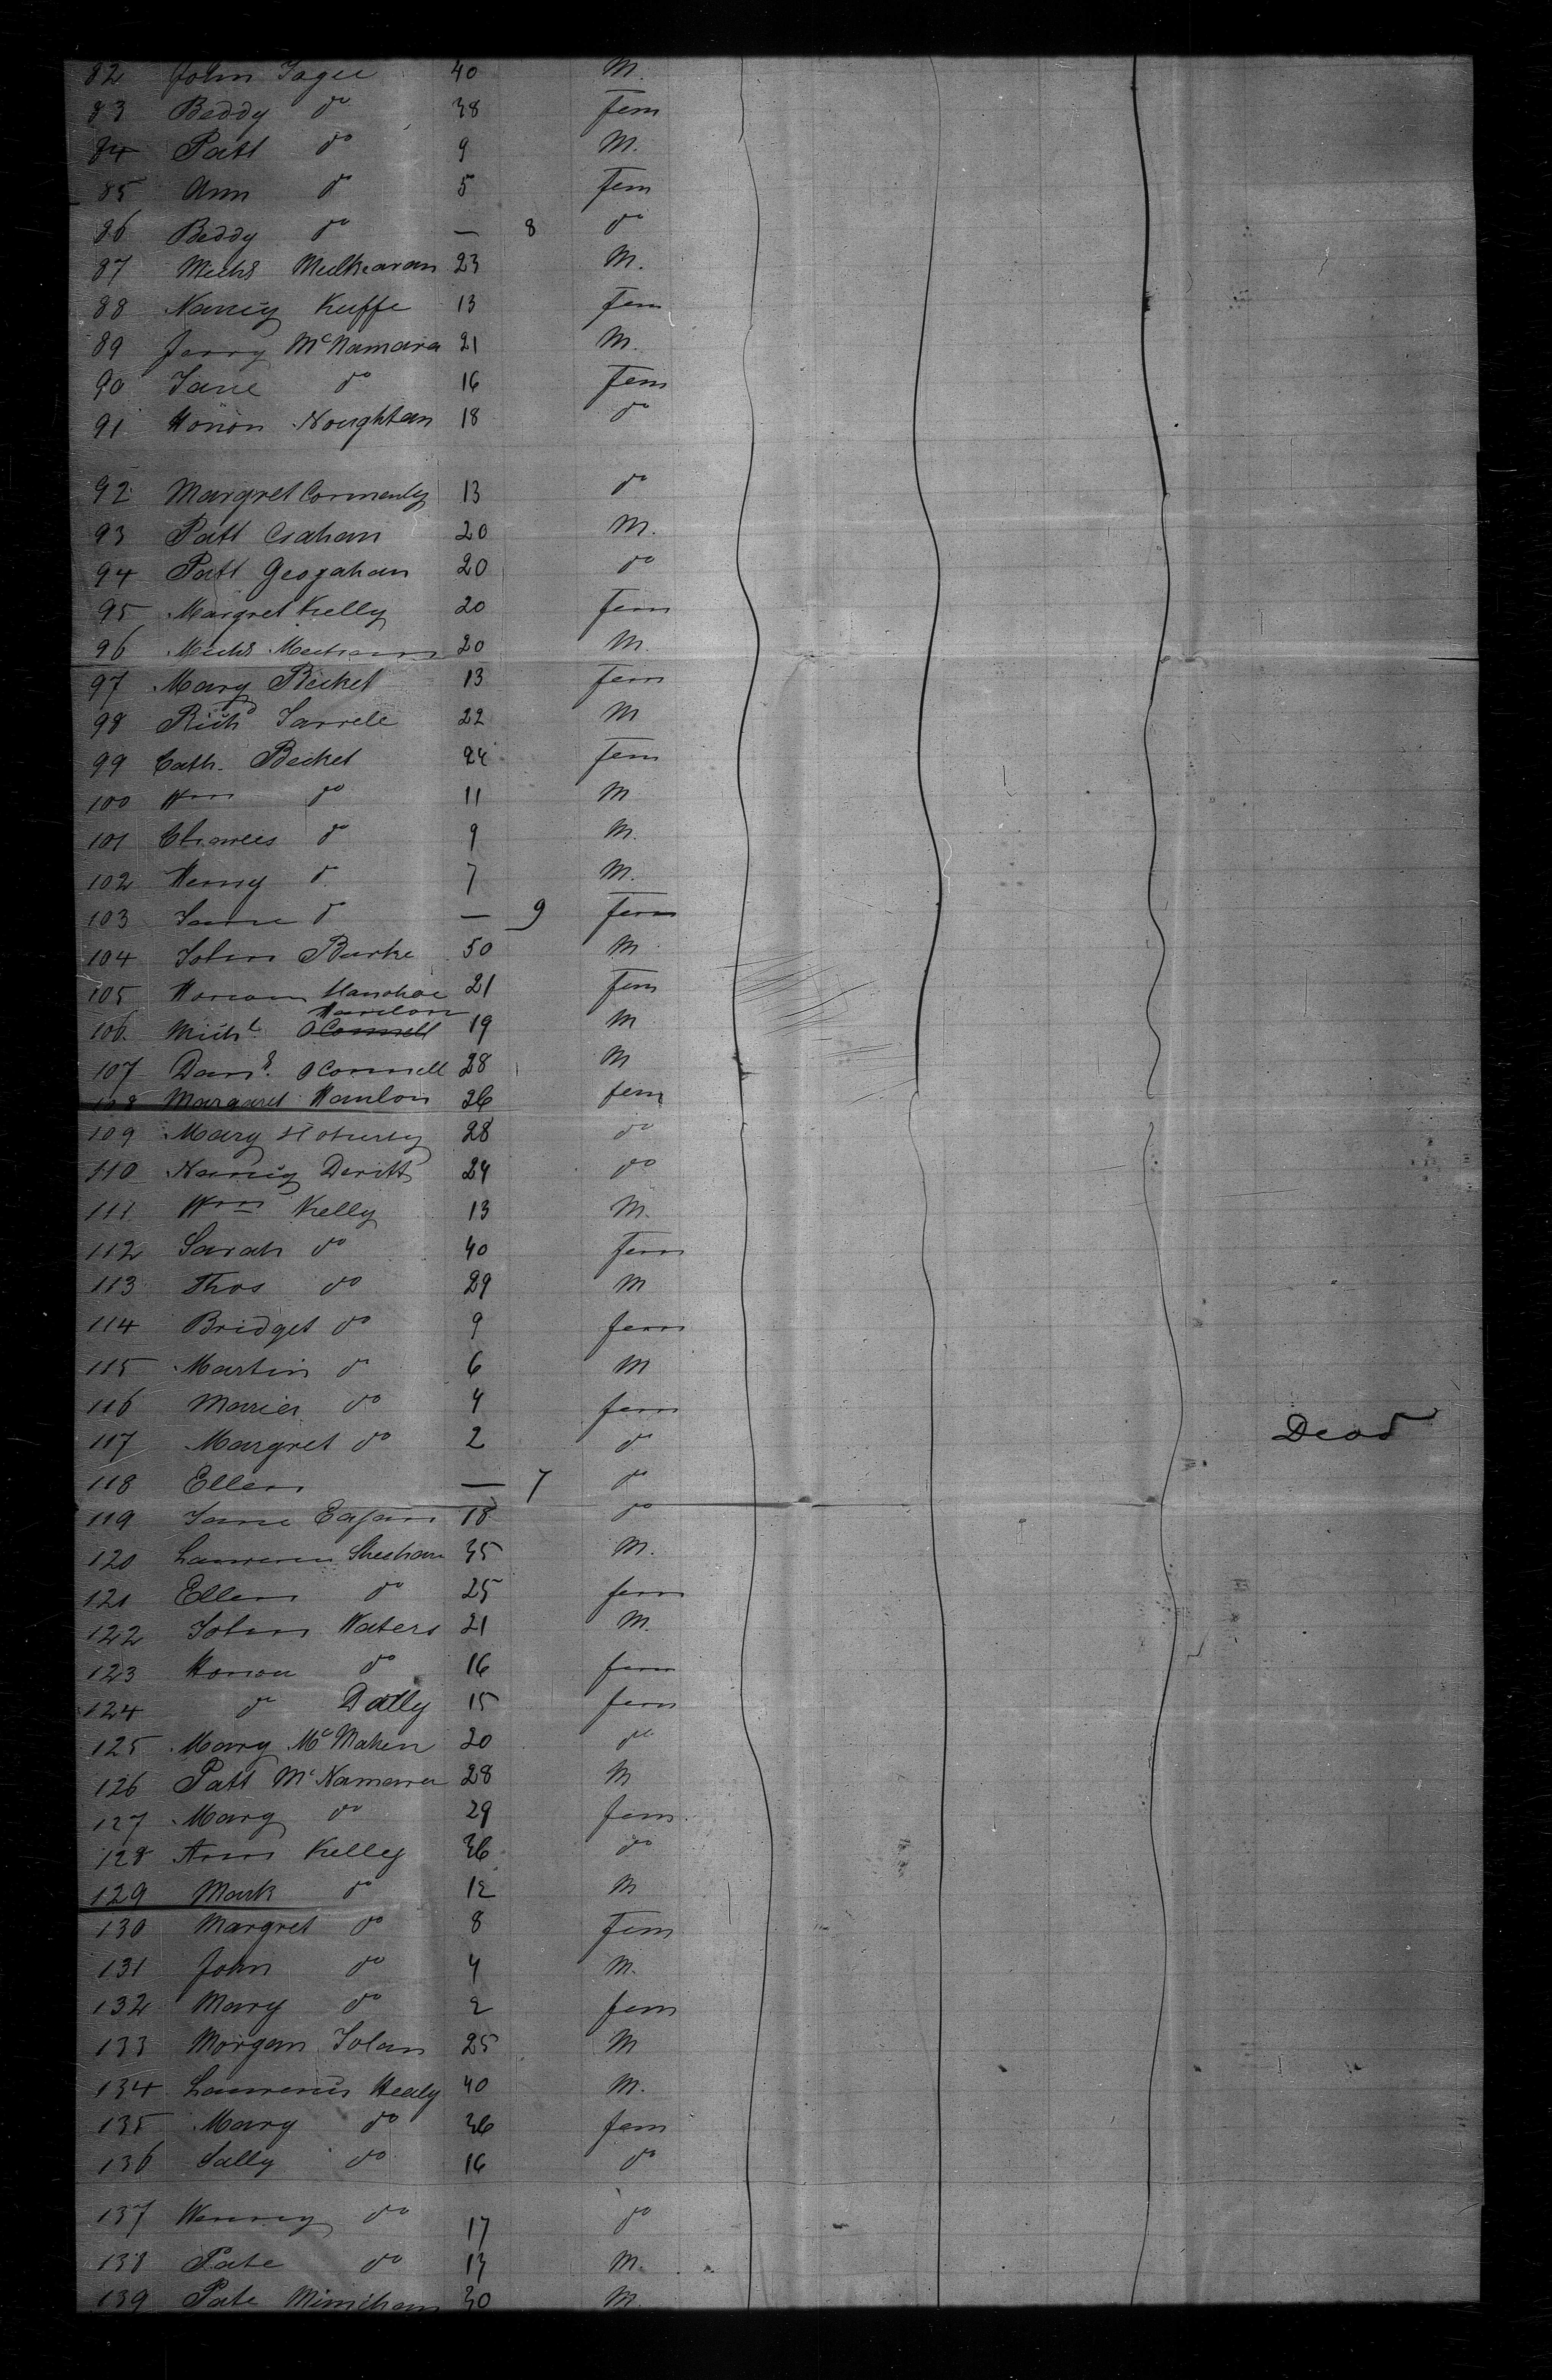 82 John Fagee 40 M.
83 Beddy do 38 Fem
84 Patt do 9 M.
85 Ann do 5 Fem
86 Beddy do — 8 do
87 Michl Mulkearan 23 M.
88 Nancy Kuffe 13 Fem
89 Jerry McNamara 21 M.
90 Jane do 16 Fem
91 Honor Noughtan 18 do
92 Margret Connenly 13 do
93 Patt Graham 20 M.
94 Patt Geogahan 20 do
95 Margret Kelly 20 Fem
96 Michl 20 M.
97 Mary Becket 13 Fem
98 Richd Farrele 22 M
99 Cath. Becket 24 Fem
100 Wm do 11 M
101 Charles do 9 M.
102 Henry do 7 M.
103 Jane do — 9 Fem
104 John Burke 50 M
105 Honour 21 Fem
Hanlon
106 Michl OConnell 19 M
107 Danl. OConnell 28 M
108 Margaret Hanlon 26 fem
109 Mary Floherty 28 do
110 Nancy Deritt 24 do
111 Wm Kelly 13 M.
112 Sarah do 40 Fem
113 Thos do 29 M
114 Bridget do 9 fem
115 Martin do 6 M
116 Maria do 4 fem
117 Margret do 2 do Dead
118 Ellen — 7 do
119 Jane Eagan 18 do
120 Lawrence Sheehan 35 M.
121 Ellen do 25 fem
122 John Waters 21 M.
123 Honor do 16 fem
124 do Dally 15 fem
125 Mary McMahen 20 do
126 Patt McNamara 28 M
127 Mary do 29 fem
128 Ann Kelley 36 do
129 Mark do 12 M
130 Margret do 8 Fem
131 John do 4 M.
132 Mary do 2 fem
133 Morgan Tolan 25 M
134 Lawrence Healy 40 M.
135 Mary do 36 fem
136 Sally do 16 do
137 do 17 do
138 Pate do 14 M.
139 Pate Minichan 30 M.